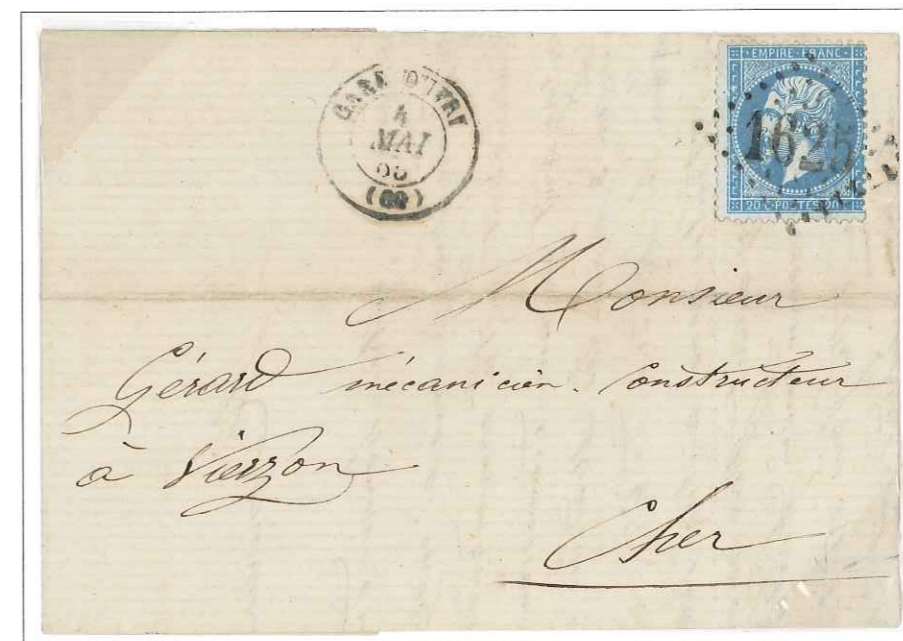 GARE D'IVRI
4
MAI
(60)
EMPIRE FRANC
1625
20 C POSTES 20
Monsieur
Gérard mécanicien. Constructeur
à Vierzon
Cher